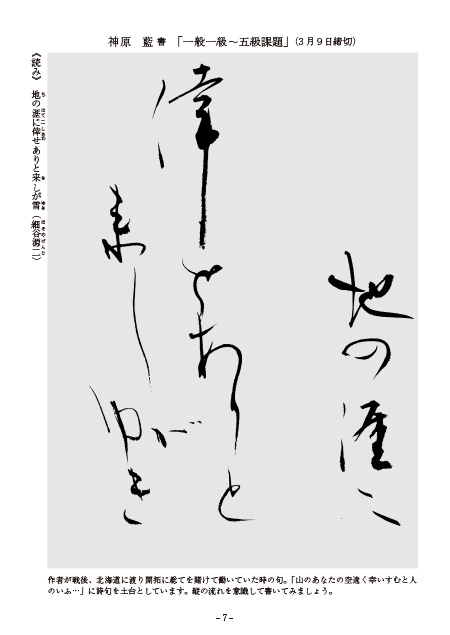 神原 藍 書 「一般一級～五級課題」(3月9日締切)
《読み》 地の涯に倖せありと来しが雪（細谷源二）
地の涯に
倖せありと
来しが
ゆき
作者が戦後、北海道に渡り開拓に総てを賭けて働いていた時の句。「山のあなたの空遠く幸いすむと人
のいふ…」に詩句を土台としています。縦の流れを意識して書いてみましょう。
- 7 -